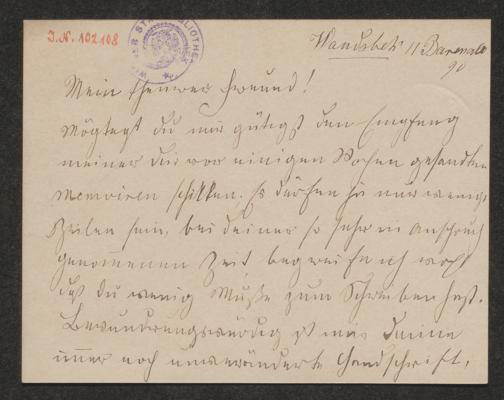 J.N. 102108
WIENER STADTBIBLIOTHEK
Wandsbek 11
90
Mein theurer Freund!
Mögtest du mir gütigst den Empfang
meiner dir vor einigen Wochen gesandten
Memoiren schikken. Es dürfen ja nur wenige
Zeilen sein, bei deiner so sehr in Anspruch
genommenen Zeit, begreife ich wohl
daß du wenig Muße zum Schreiben hast.
Bewundrungswürdig ist mir deine
immer noch unveränderte Handschrift,